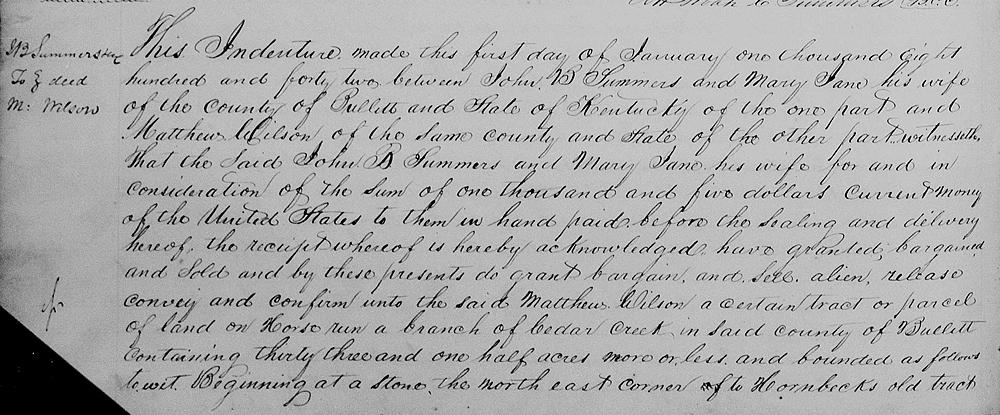 JB Summers &c
To } deed
M: Wilson
This Indenture made this first day of January one thousand Eight
hundred and forty two between John B Summers and Mary Jane his wife
of the county of Bullett and State of Kentucky of the one part and
Matthew Wilson of the same county and State of the other part witnesseth,
That the said John B Summers and Mary Jane his wife for and in
consideration of the sum of one thousand and five dollars current money
of the United States to them in hand paid before the sealing and delivery
hereof, the receipt whereof is hereby acknowledged have granted, bargained
and Sold and by these presents do grant bargain, and, sell, alien, release
convey and confirm unto the said Matthew Wilson a certain tract or parcel
of land on Horse run a branch of Cedar Creek in said county of Bullett
Containing thirty three and one half acres more or less and bounded as follows
towit. Beginning at a Stone, the north east corner to Hornbecks old tract